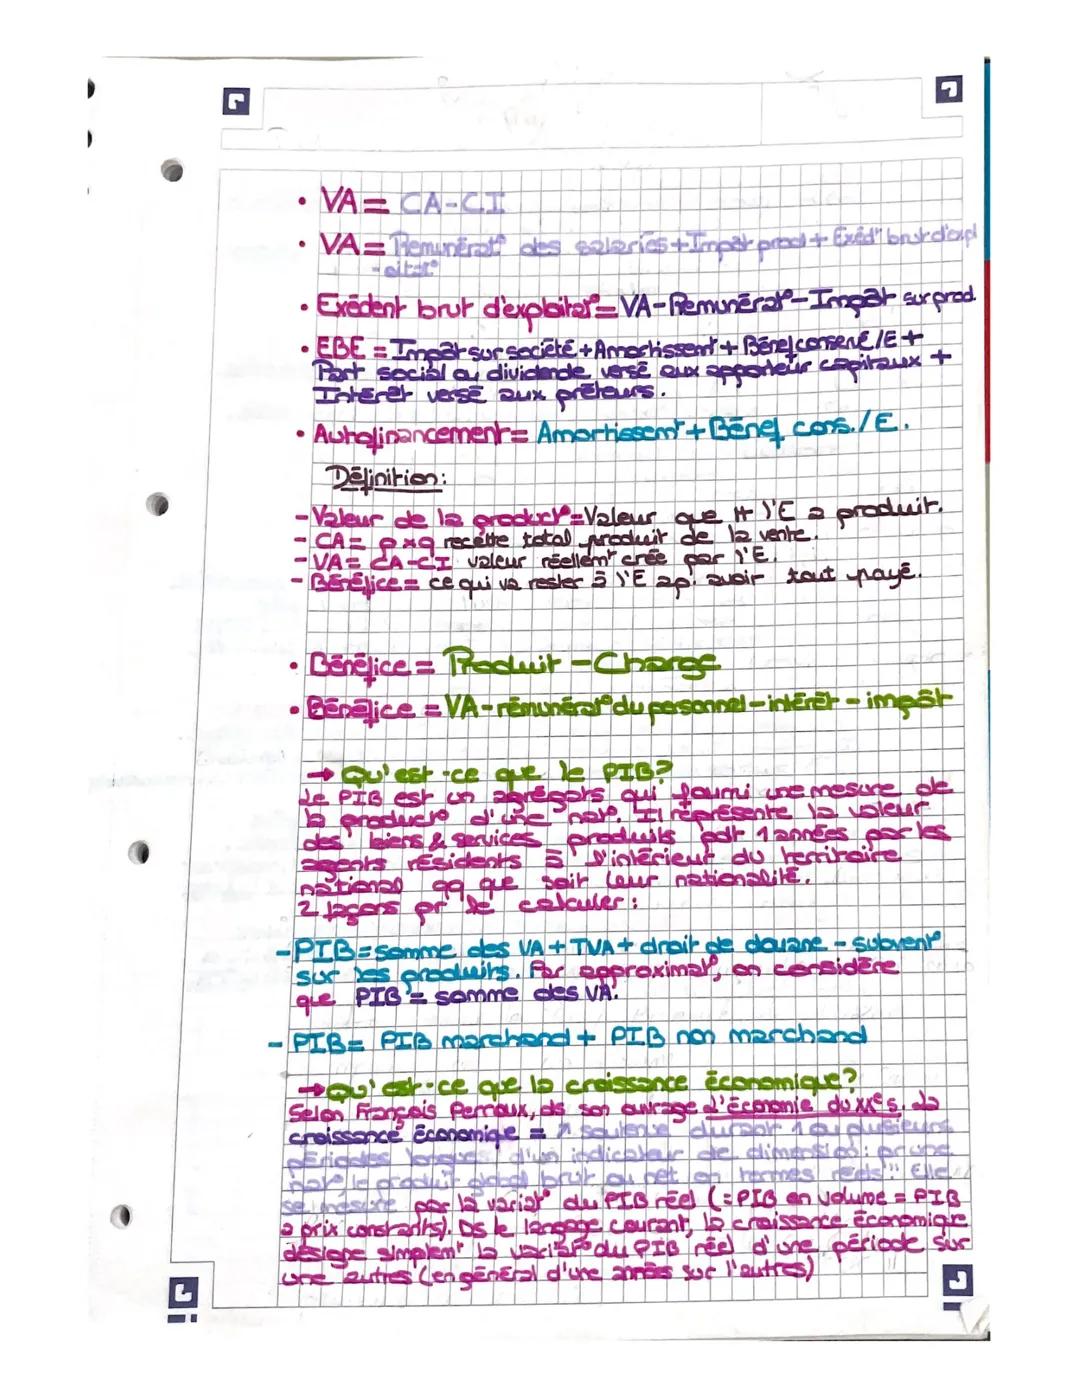 • VA = CA-CI
• VA = Remunérat° des salariés + Impôt prod + Exéd^t brut d'expl
-oitat°
• Exédent brut d'exploitat° = VA - Remunérat° - Impôt sur prod.
• EBE = Impôt sur société + Amortissem^t + Bénef conservé /E +
Part social ou dividende versé aux apporteur capitaux +
Intérêt versé aux prêteurs.
• Autofinancement = Amortissem^t + Bénef cons. /E.
Définition:
- Valeur de la product° = Valeur que tt l'E a produit.
- CA = p×q recette total produit de la vente.
- VA = CA-CI valeur réellem^t crée par l'E.
- Bénéfice = ce qui va rester à l'E ap. avoir tout payé.
• Bénéfice = Produit - Charge
• Bénéfice = VA - rémunérat° du personnel - intérêt - impôt
→ Qu'est-ce que le PIB?
Le PIB est un agrégats qui fourni une mesure de
la product° d'une nat°. Il représente la valeur
des biens & services produits pdt 1 années par les
agents résidents à l'intérieur du territoire
national qq que soit leur nationalité.
2 façons pr le calculer:
- PIB = somme des VA + TVA + droit de douane - subvent°
sur les produits. Par approximat°, on considère
que PIB = somme des VA.
- PIB = PIB marchand + PIB non marchand
→ Qu'est-ce que la croissance économique?
Selon François Perroux, ds son ouvrage L'économie du XXe s. La
croissance économique = ↗ soutenue durant 1 ou plusieurs
périodes longues d'un indicateur de dimension: pr une
nat°, le produit global brut ou net en termes réels". Elle
se mesure par la variat° du PIB réel (= PIB en volume = PIB
a prix constants). Ds le langage courant, la croissance économique
désigne simplem^t la variat° du PIB réel d'une période sur
une autres (en général d'une années sur l'autres)